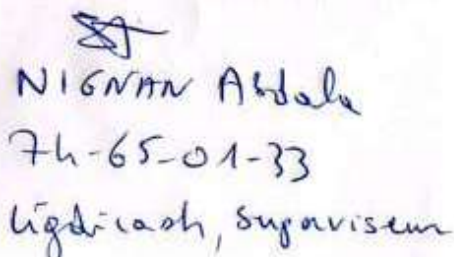 NIGNAN Abdala
74-65-01-33
Ligdicash, superviseur